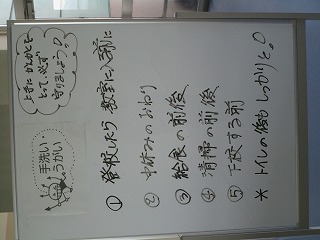 手洗い・
うがい
上手にかんかくを
とって 必ず
守りましょう!!
① 登校したら 教室に入る前に
② 中休みのおわり
③ 給食の前後
④ 清掃の前後
⑤ 下校する前
* トイレの後も しっかりと。